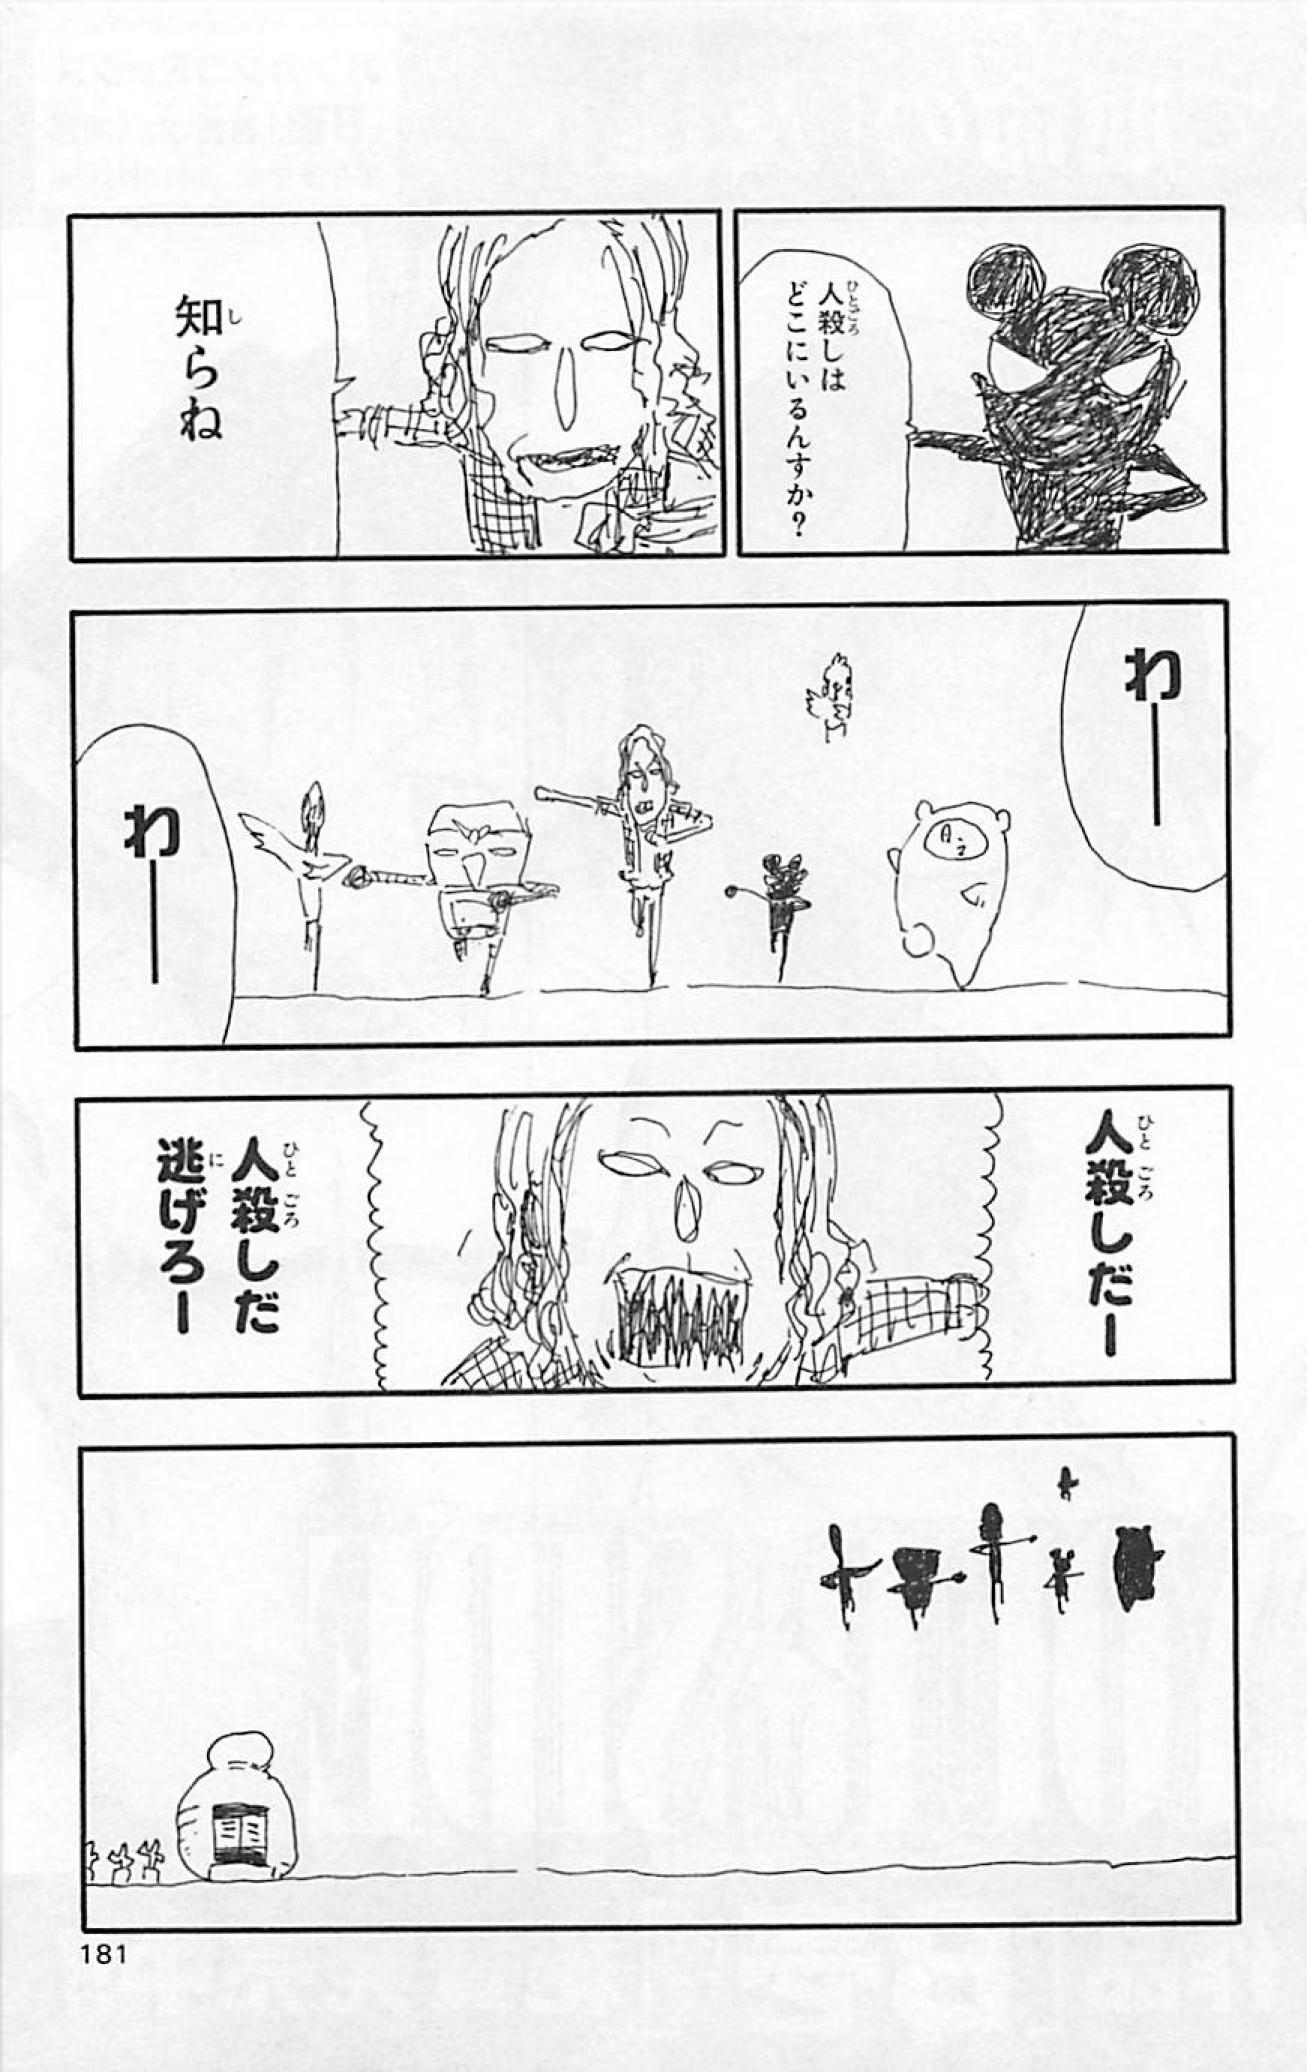 人殺しは
どこにいるんすか？
知らね
わー
わー
人殺しだー
人殺しだ
逃げろー
181